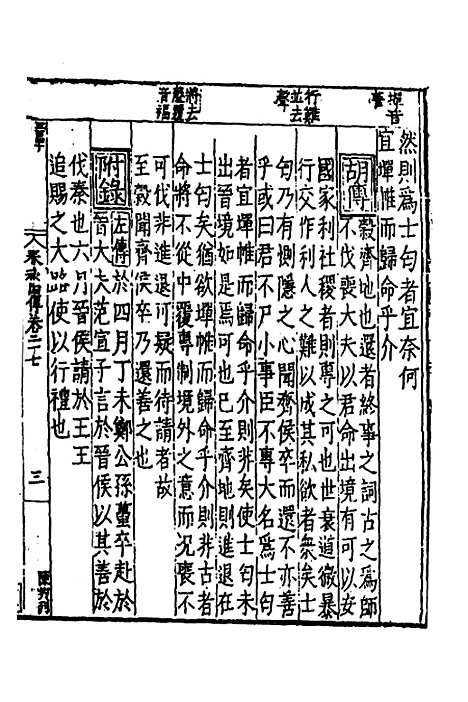 然則為士匄者宜奈何
宜墠帷而歸命乎介
胡傳 穀齊地也還者終事之詞古之為師
不伐喪大夫以君命出境有可以安
國家利社稷者則專之可也世衰道微暴
行交作利人之難以成其私欲者衆矣士
匄乃有惻隱之心聞齊侯卒而還不亦善
乎或曰君不尸小事臣不專大名為士匄
者宜墠帷而歸命乎介則非矣使士匄未
出晉境如是焉可也已至齊地則進退在
士匄矣猶欲墠帷而歸命乎介則非古者
命將不從中覆專制境外之意而况喪不
可伐非進退可疑而待請者故
至穀聞齊侯卒乃還善之也
附錄 左傳於四月丁未鄭公孫蠆卒赴於
晉大夫范宣子言於晉侯以其善於
伐秦也六月晉侯請於王王
追賜之大路使以行禮也
墠音
行難
並去
聲
將去
聲覆
音福
春秋四傳卷二十七
三